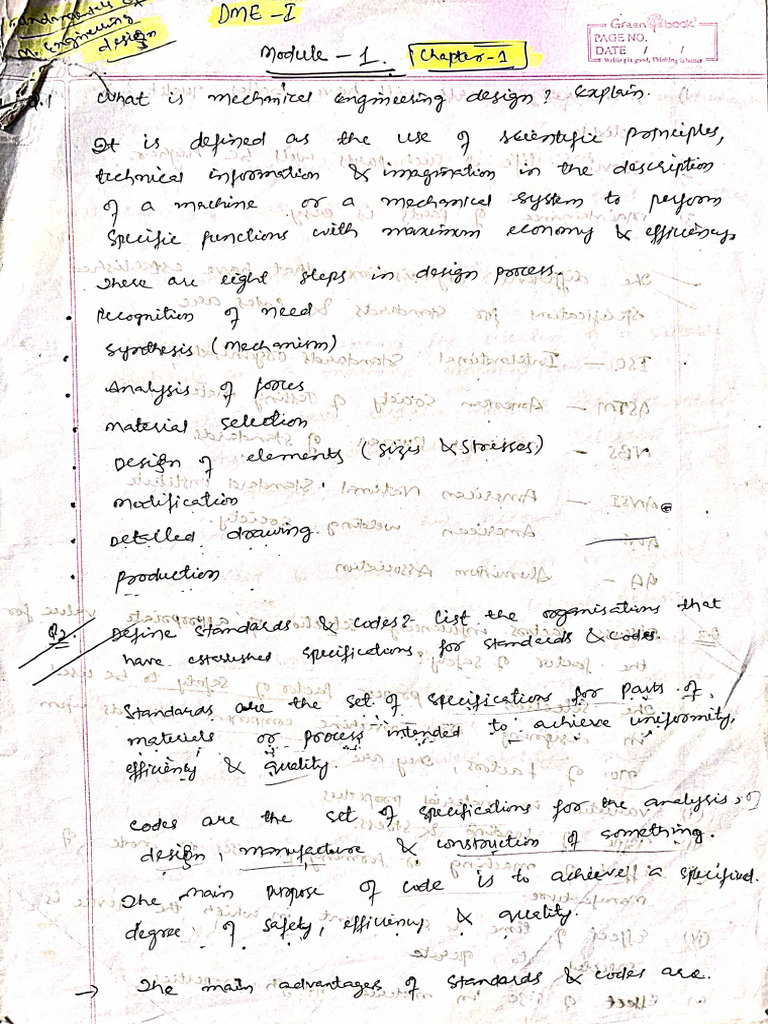 Fundamentals of
M. Engineering
design
DME - I
Green book
PAGE NO.
DATE / /
Writing is good, Thinking is better
Module - 1. Chapter-1
Q.1 What is mechanical engineering design? Explain.
It is defined as the use of scientific principles,
technical information & imagination in the description
of a machine or a mechanical system to perform
specific functions with maximum economy & efficiency.
There are eight steps in design process.
• Recognition of need
• Synthesis (Mechanism)
• Analysis of forces
• Material selection
• Design of elements (Sizes & Stresses)
• Modification
• Detailed drawing.
• Production
Q2. Define Standards & codes? List the organisations that
have established specifications for standards & codes.
Standards are the set of specifications for parts of,
materials or process intended to achieve uniformity,
efficiency & quality.
Codes are the set of specifications for the analysis, of
design, manufacture & construction of something.
The main purpose of code is to achieve a specified
degree of safety, efficiency & quality.
→ The main advantages of standards & codes are.